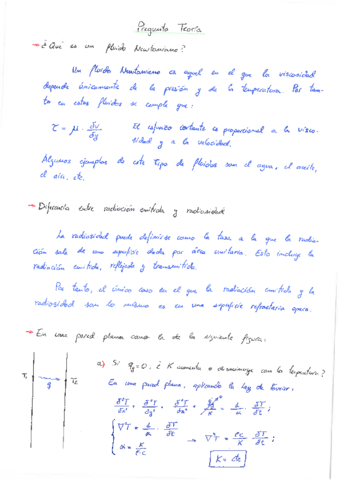 Pregunta Teoría
→ ¿Qué es un fluido Newtoniano?
Un fluido Newtoniano es aquel en el que la viscosidad
depende únicamente de la presión y de la temperatura. Por tan-
to en estos fluidos se cumple que:
τ = μ · ∂v/∂y   El esfuerzo cortante es proporcional a la visco-
sidad y a la velocidad.
Algunos ejemplos de este tipo de fluidos son el agua, el aceite,
el aire, etc.
→ Diferencia entre radiación emitida y radiosidad
La radiosidad puede definirse como la tasa a la que la radia-
ción sale de una superficie dada por área unitaria. Esto incluye la
radiación emitida, reflejada y transmitida.
Por tanto, el único caso en el que la radiación emitida y la
radiosidad son lo mismo es en una superficie
→ En una pared plana como la de la siguiente figura:
a) Si q_g = 0, ¿K aumenta o disminuye con la temperatura?
T₁ q T₂
En una pared plana, aplicando la ley de Fourier,
∂²T/∂x² + ∂²T/∂y² + ∂²T/∂z² +
∂T/∂t ;
∇²T =
∂T/∂t → ∇²T = ρc/K ∂T/∂t ;
α = K/ρ·c
K = cte